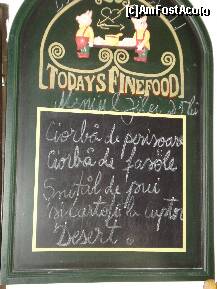 [c]AmFostAcolo.ro
TODAY'S FINEFOOD!
Meniul Zilei 25 lei
Ciorbă de perisoare
Ciorbă de fasole
Snitâl de pui
si cartofi la cuptor
Desert.